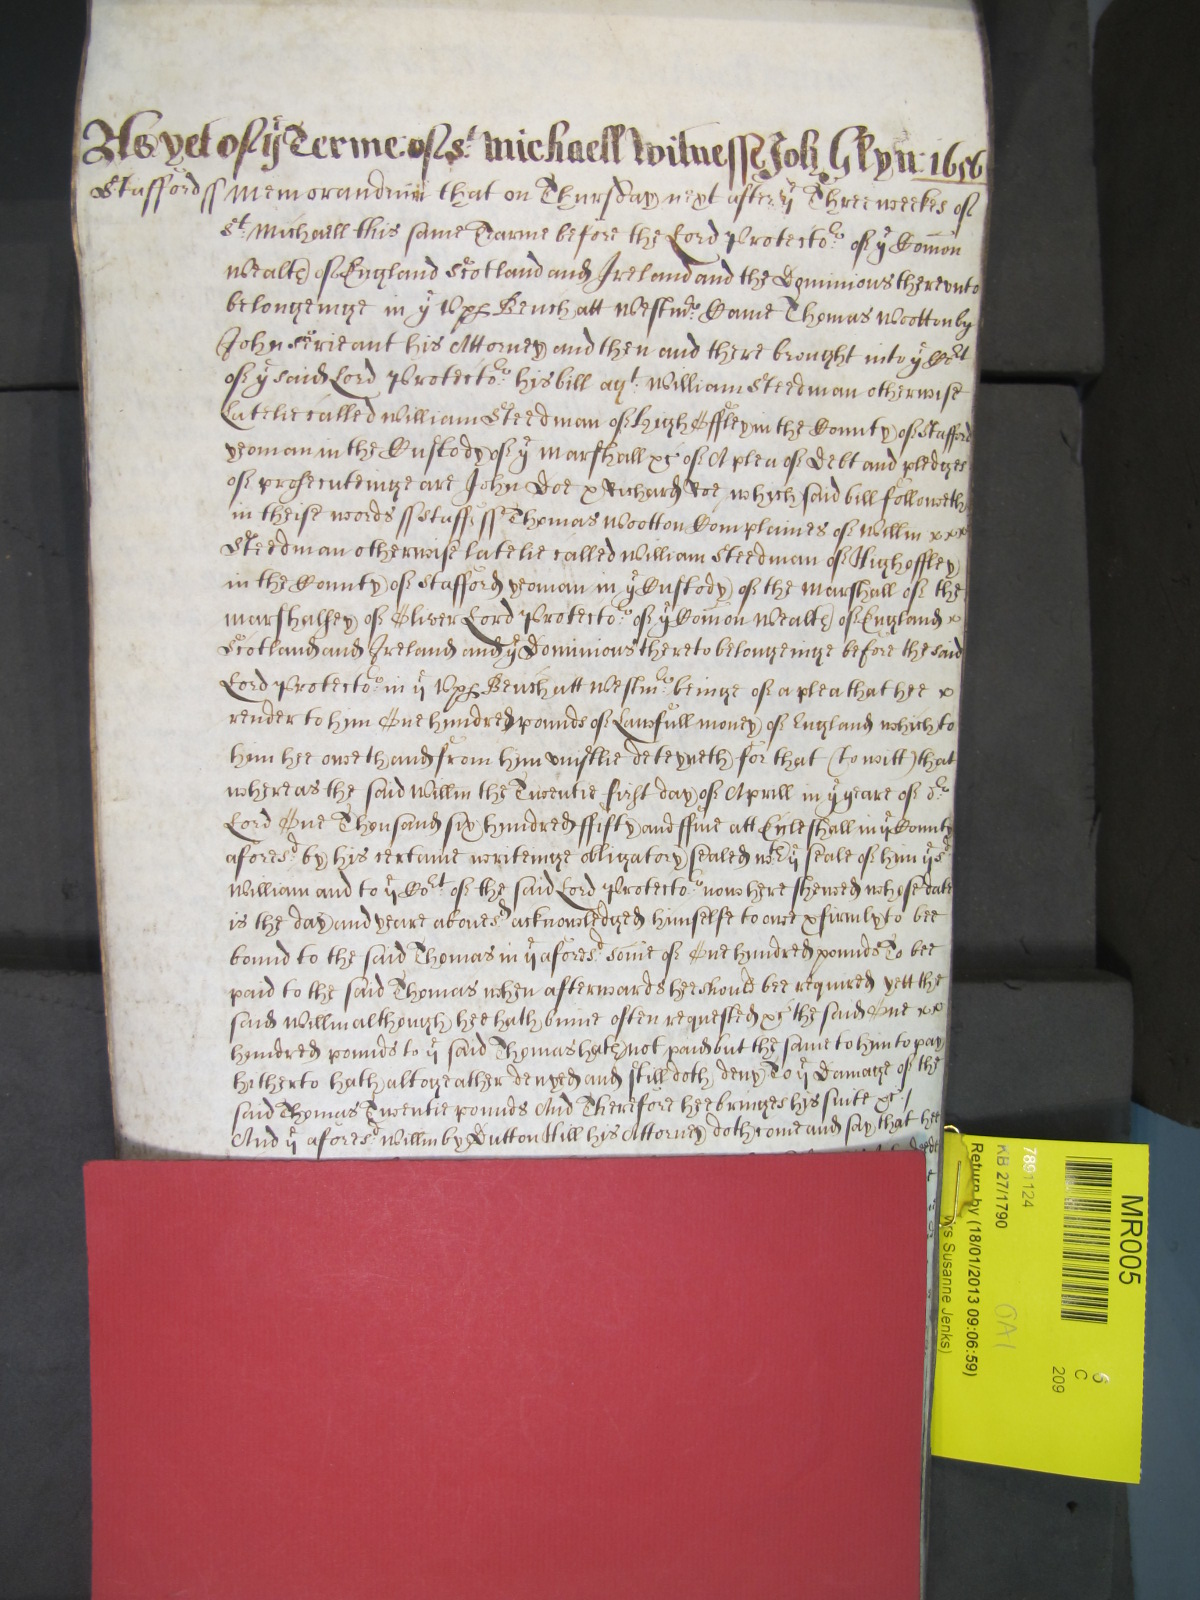 As yet of ye Terme of St Michaell Witnesse Joh Glyn 1656
Stafford ss Memorandum that on Thursday next after ye Three weekes of
St Michaell this same Tearme before the Lord Protector of ye Comon
Wealth of England Scotland and Ireland and the Dominions thereunto
belongeinge in ye Upp Bench att Westmr Came Thomas Wootton by
John Serieant his Attorney and then and there brought into ye Cort
of ye said Lord Protector his bill agt William Steedman otherwise
Latelie called William Steedman of High Offley in the County of Stafford
yeoman in the Custody of ye Marshall &c of A plea of Debt and pledges
of prosecuteinge are John Doe & Richard Roe which said bill followeth
in theise words ss Staff ss Thomas Wootton Complaines of Willm x x x
Steedman otherwise latelie called William Steedman of High offley
in the County of Stafford yeoman in ye Custody of the Marshall of the
marshalsey of Oliver Lord Protector of ye Comon Wealth of England x
Scotland and Ireland and ye Dominions thereto belongeinge before the said
Lord Protector in ye Upp Bench att Westmr beinge of a plea that hee x
render to him One hundred pounds of Lawfull money of England which to
him hee oweth and from him uniustlie deteyneth for that (to witt) that
whereas the said Willm the Twentie first day of Aprill in ye yeare of or
Lord One Thousand six hundred ffifty and ffive att Eyleshall in ye County
aforesd by his certaine writeinge obligatory sealed wth ye seale of him ye sd
William and to ye Cort of the said Lord Protector now here shewed whose date
is the day and yeare abovesd acknowledged himselfe to owe & firmly to bee
bound to the said Thomas in ye aforesd some of One hundred pounds To bee
paid to the said Thomas when afterwards hee should bee required yett the
said Willm although hee hath binne often requested &c the said One x x
hundred pounds to ye said Thomas hath not paid but the same to him to pay
hitherto hath altogeather denyed and still doth deny To ye Damage of the
said Thomas Twentie pounds And Therefore hee bringes his suite &c /
And ye aforesd Willm by Dutton Hill his Attorney doth come and say that hee
MR005
6
C
209
7891124
KB 27/1790
Return by (18/01/2013 09:06:59)
Mrs Susanne Jenks)